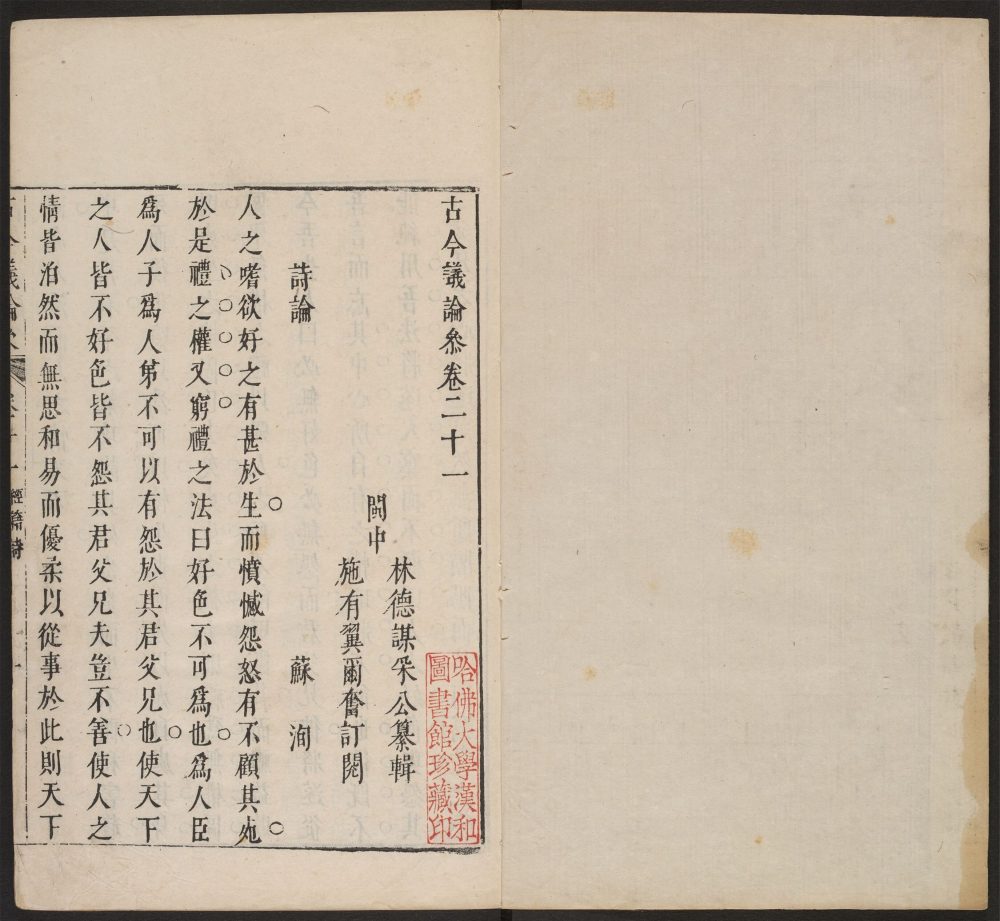 古今議論參卷二十一
閩中
林德謀采公纂輯
施有翼爾奮訂閱
哈佛大學漢和
圖書館珍藏印
詩論
蘇洵
人之嗜欲好之有甚於生而憤憾怨怒有不顧其死
於是禮之權又窮禮之法曰好色不可爲也爲人臣
爲人子爲人弟不可以有怨於其君父兄也使天下
之人皆不好色皆不怨其君父兄夫豈不善使人之
情皆泊然而無思和易而優柔以從事於此則天下
經籍詩